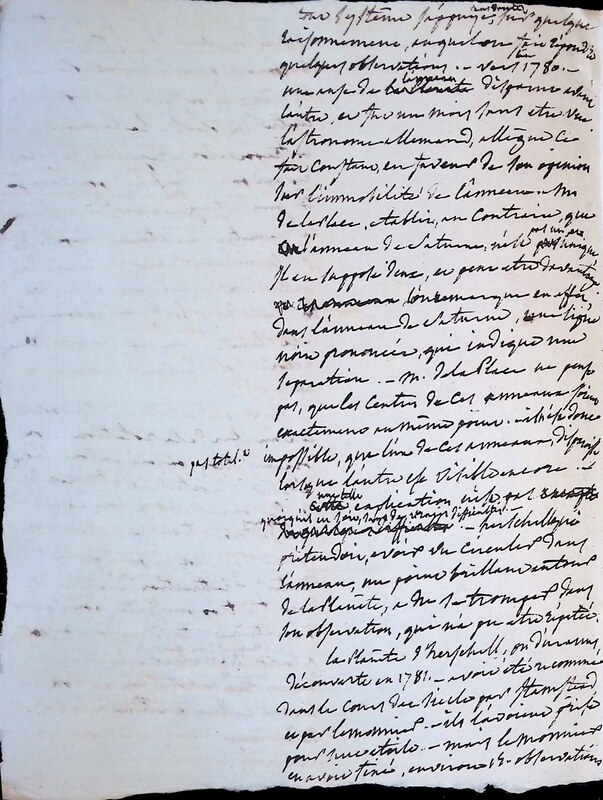 son système s'appuye sur quelque
raisonnement, auquel on fait répondre
quelques observations. – vers 1780. –
une anse de l'anneau disparue avant
l'autre, en fut un mois sans etre vue
l'astronome allemand, allègue ce
fait constant, en faveur de son opinion
sur l'immobilité de l'anneau. M.
de la place, établit, au contraire, que
l'anneau de Saturne, n'est pas unique
Il en suppose deux, et peut etre davantage
l'on remarque en effet,
dans l'anneau de Saturne, une ligne
noire prononcée, qui indique une
séparation. – M. de la Place ne pense
pas, que les centres de ces anneaux soient
exactement au même point. – il est donc
pas total.t
impossible, que l'un de ces anneaux, disparoisse
lorsque l'autre est visible encore. –
une telle
explication n'est pas
quoiqu'il en soit,
– herschell qui
prétendoit, avoir vu circuler dans
l'anneau, un point brillant autour
de la Planète, a du se tromper dans
son observation, qui n'a pu etre répétée.
la Planète d'herschell, ou d'uranus,
découverte en 1781. – avoit été reconnue
dans le cours du siècle par flamsteed
et par lemonnier. – ils l'avoient prise
pour une étoile. – mais lemonnier
en avoit tiré, environ 15. observations